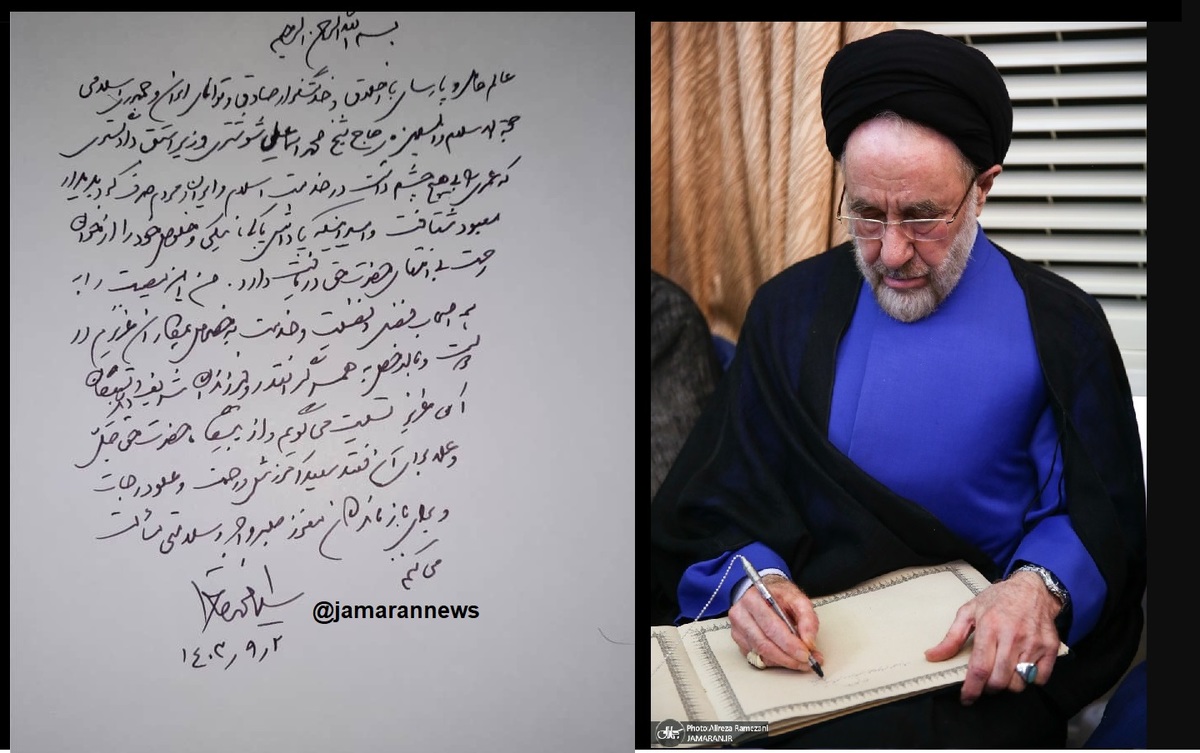 بسم الله الرحمن الرحیم
عالم عامل و پارسای با اخلاق و خدمتگزار صادق و توانای ایران و جمهوری اسلامی
حجة الاسلام والمسلمین حاج شیخ محمد اسماعیل شوشتری وزیر اسبق دادگستری
که عمری بی هیچ چشم داشت در خدمت اسلام و ایران و مردم صرف کرد به دیدار
معبود شتافت و امید اینکه پاداش پاکی، نیکی و خلوص خود را از خوان
رحمت بی انتهای حضرت حق دریافت دارد. من این مصیبت را به
همه اصحاب فضل و فضیلت و خدمت به خصوص همکاران عزیزم در
دولت و بالاخص به همسر گرانقدر و فرزندان شریف و بستگان
آن عزیز تسلیت می گویم و از پیشگاه حضرت حق جل
و علا برای آن فقید سعید آمرزش و رحمت و علو درجات
و برای بازماندگان معزز صبر و اجر و سلامتی مسألت
می کنم
سید محمد خاتمی
@jamarannews
۱۴۰۳٫۹٫۲
Photo:Alireza Ramezani
JAMARAN.IR